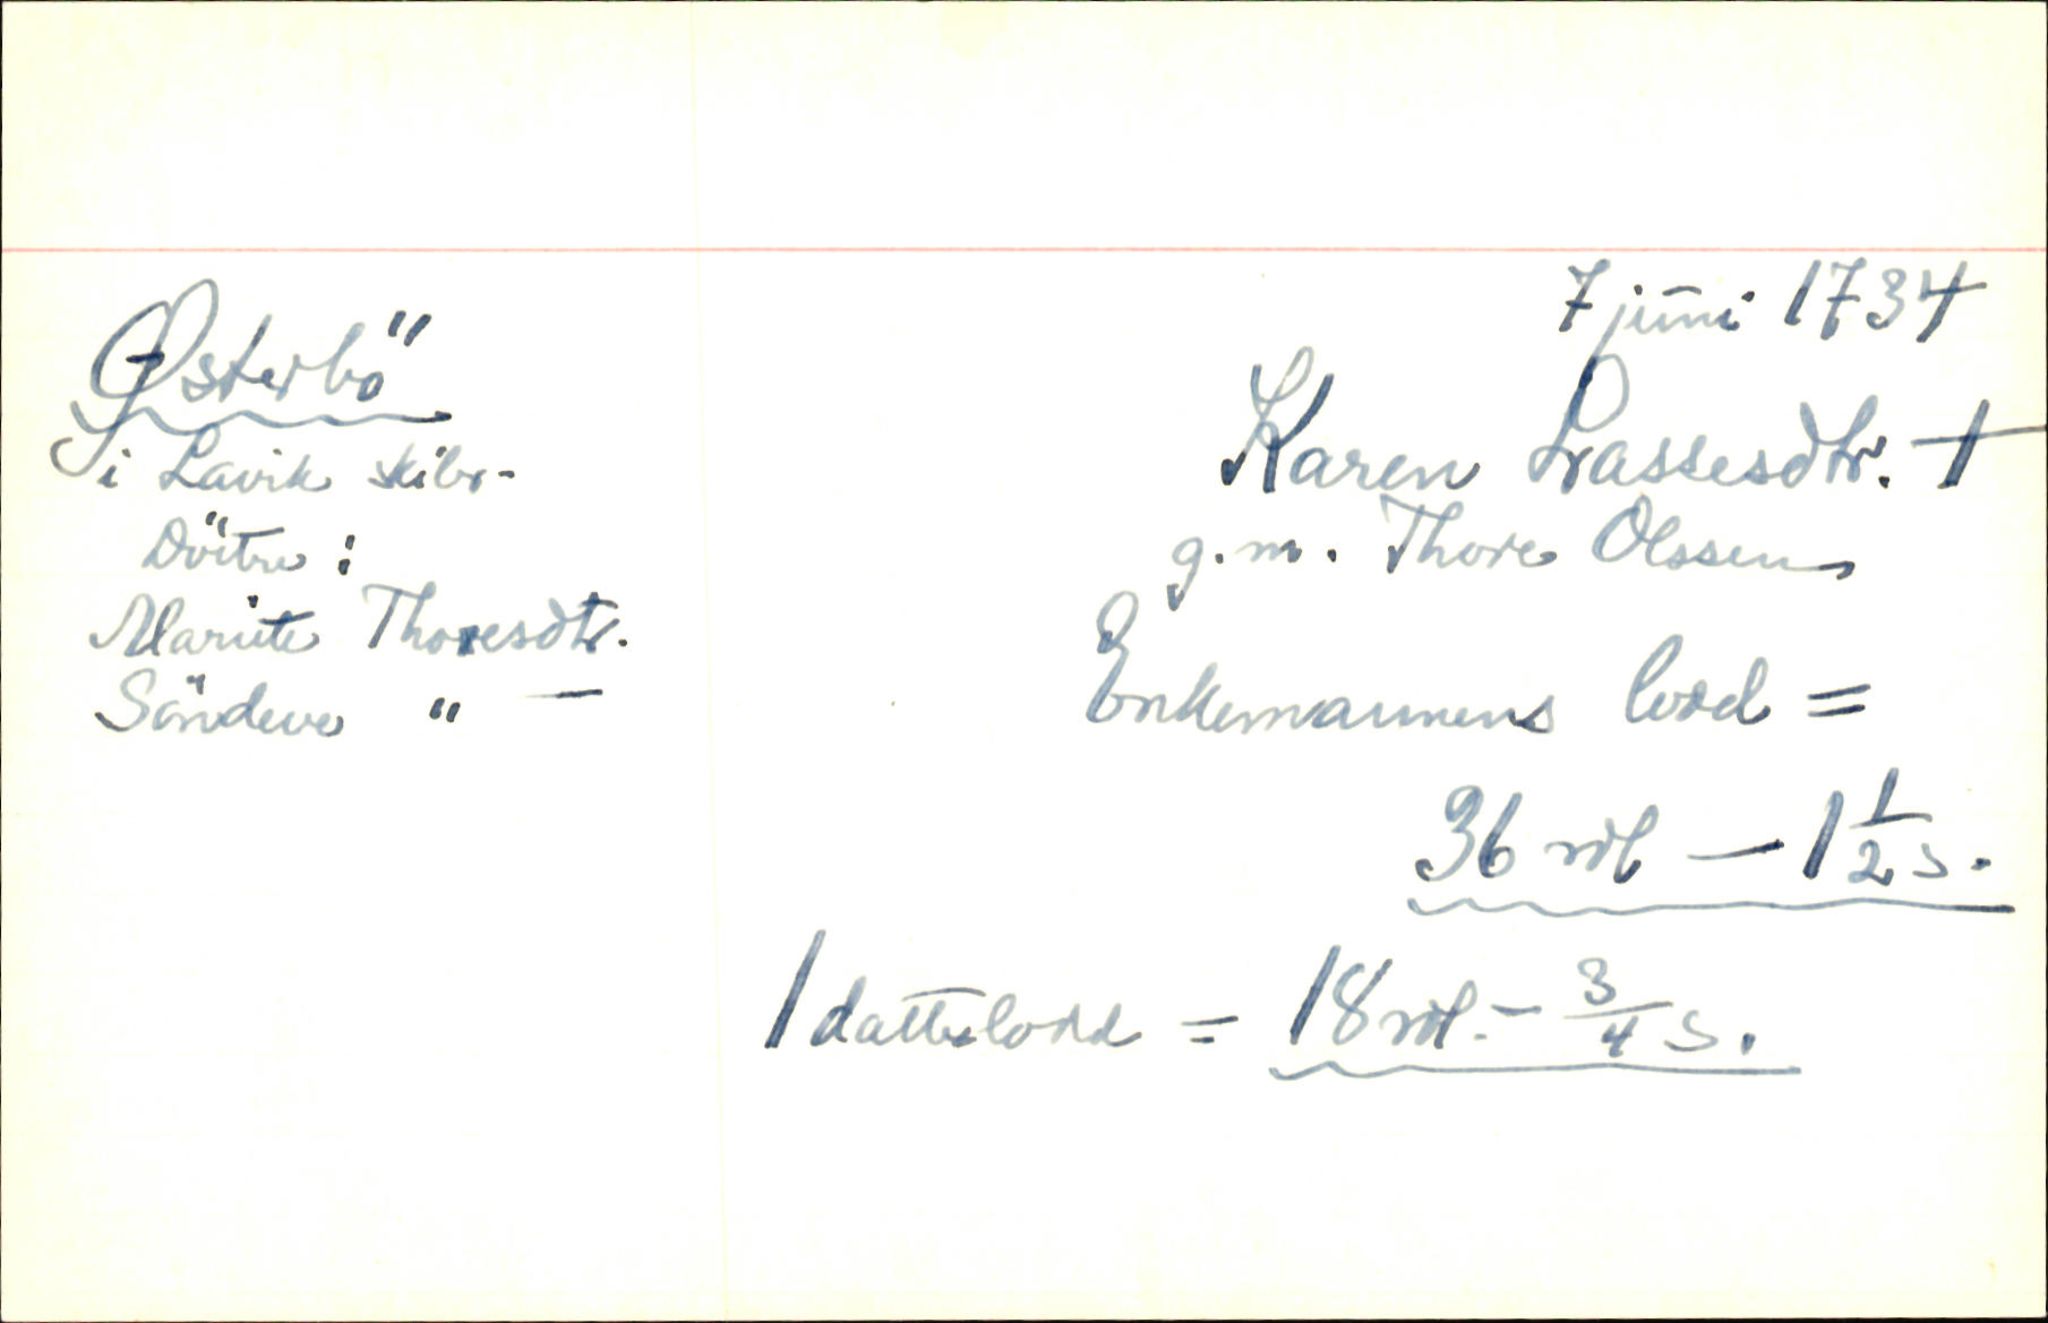 7 juni 1734
Østerbö
i Lavik skibr-
Döttre :
Marite Thoresdtr.
Söndeve " —
Karen Lassesdtr. †
g.m. Thore Olssen
Enkemannens lodd =
36 rdl — 1 1/2 s.
1 datterlodd = 18 rdl. - 3/4 s.